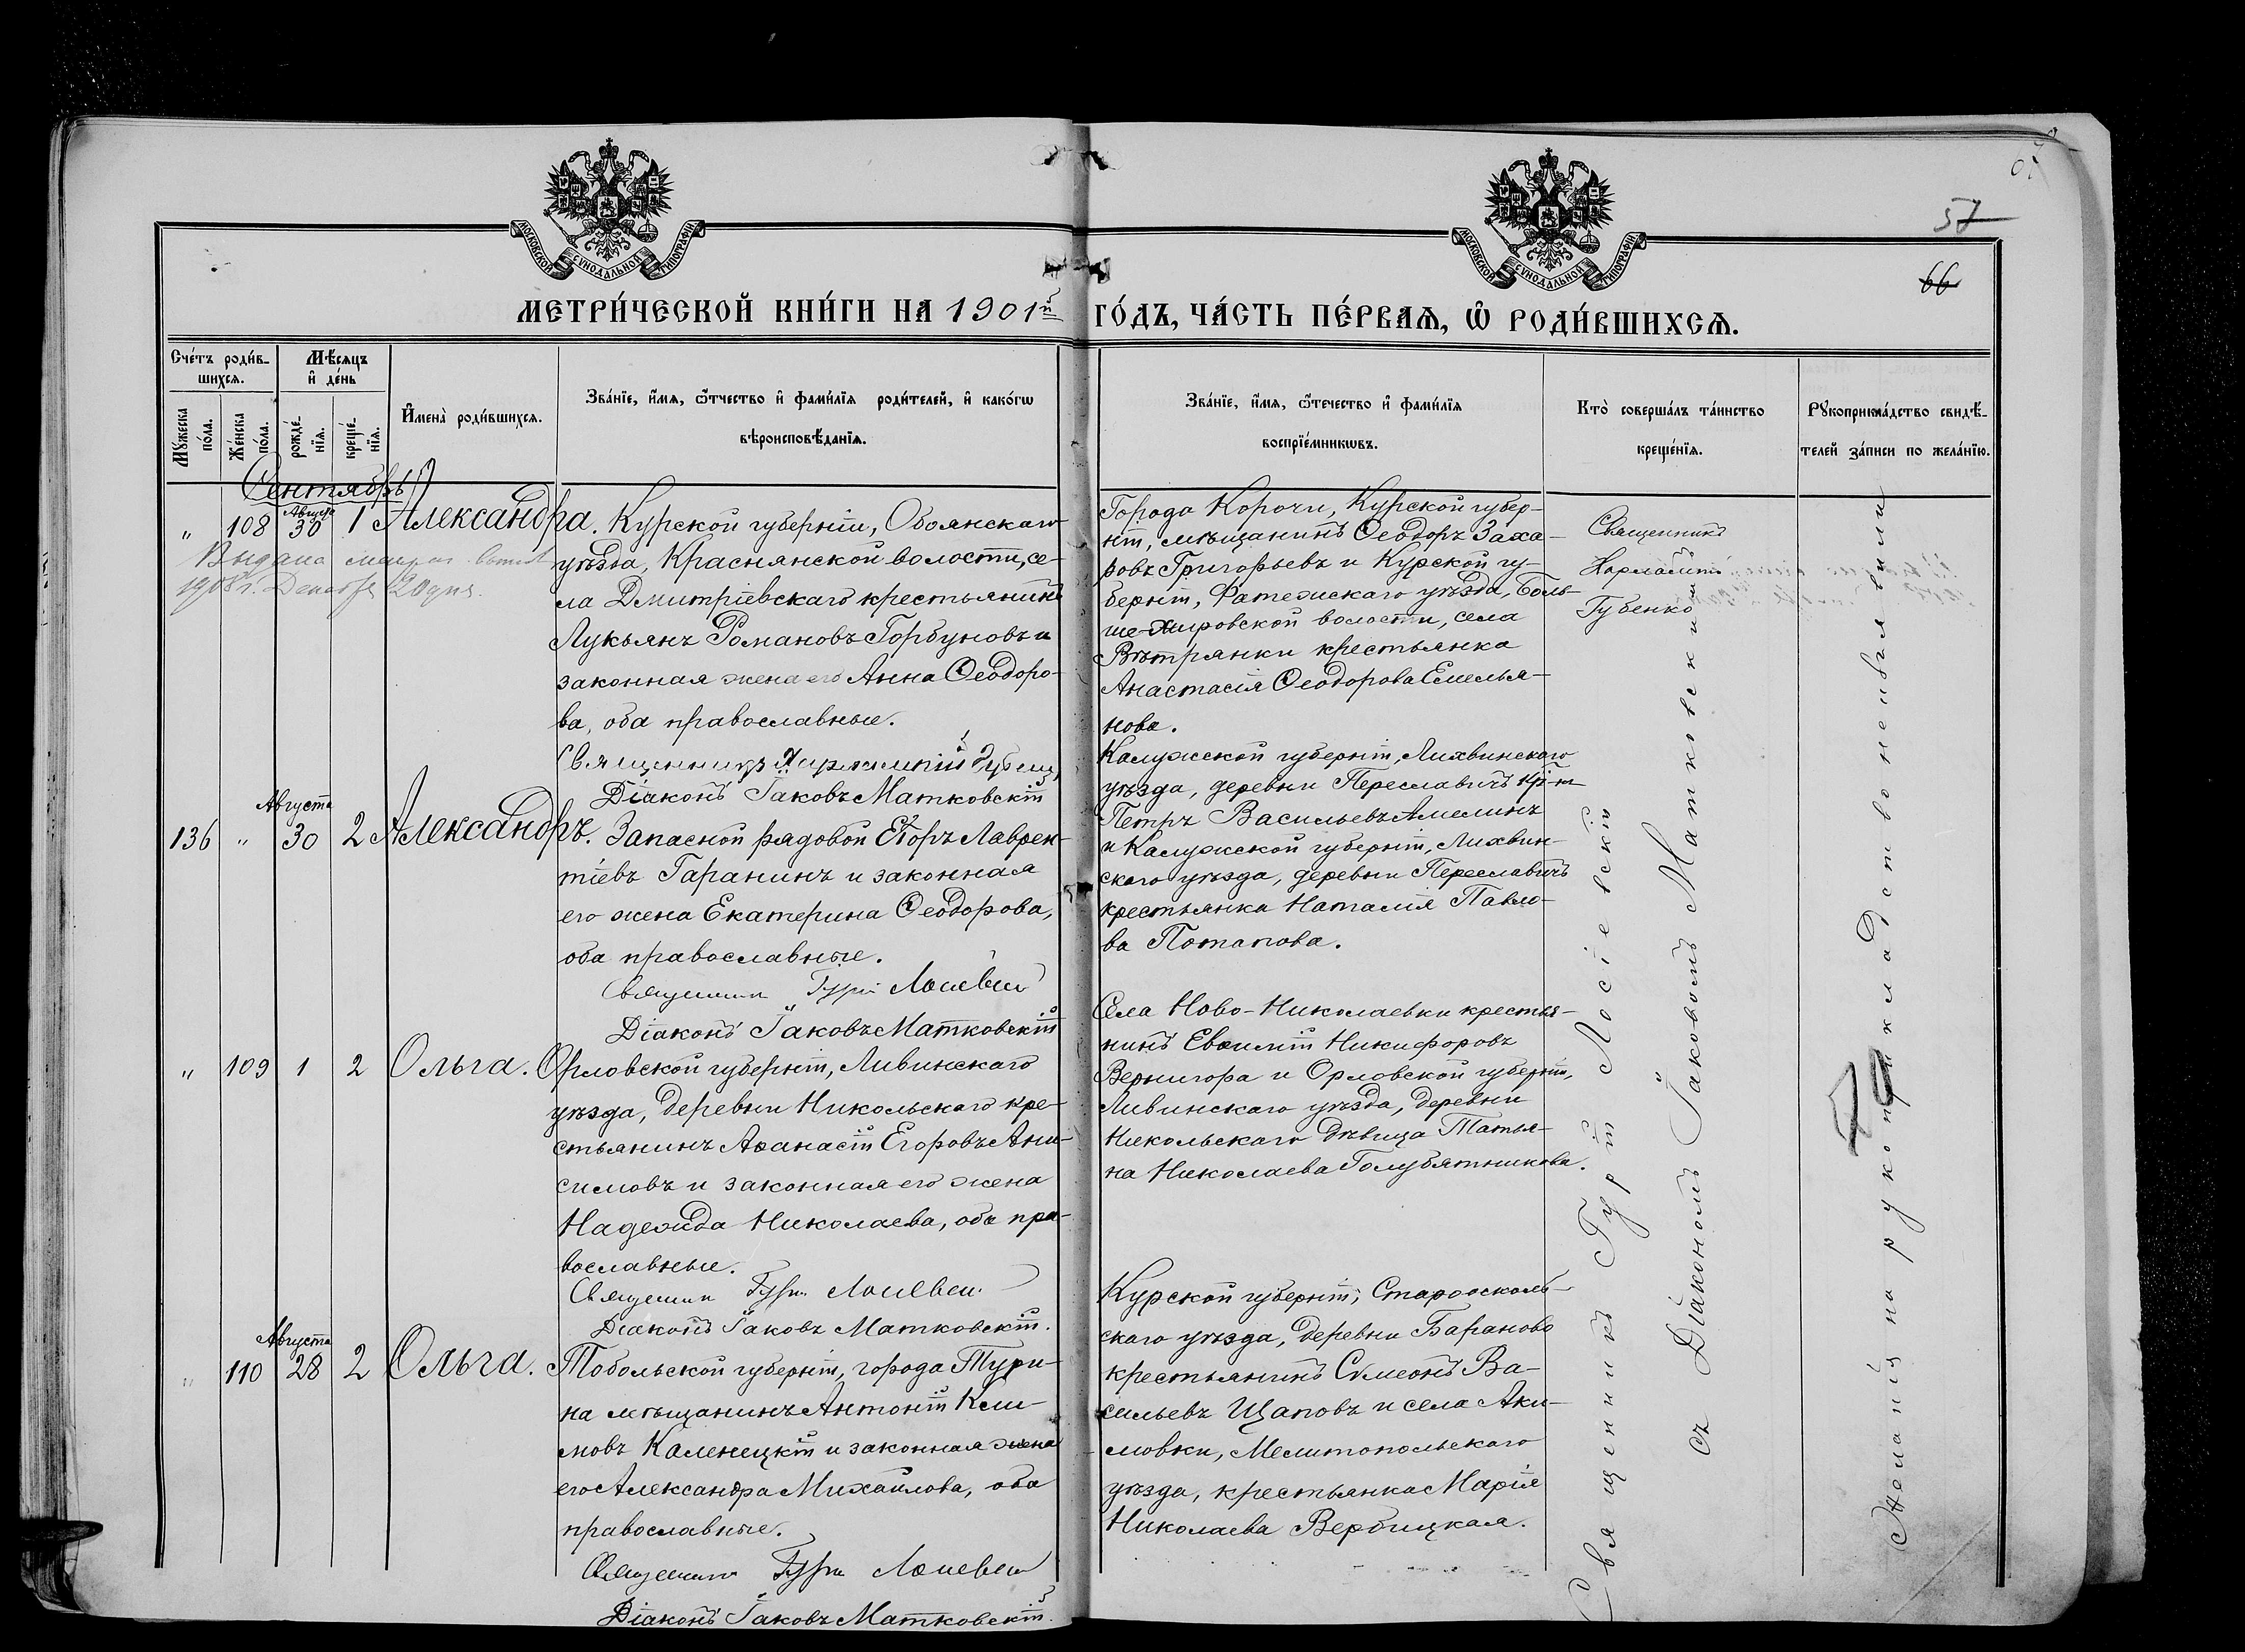 МОСКОВСКОЙ СѴНОДАЛЬНОЙ ТИПОГРАФІИ
МОСКОВСКОЙ СѴНОДАЛЬНОЙ ТИПОГРАФІИ
57
66
МЕТРИ́ЧЕСКОЙ КНИ́ГИ НА 1901й ГО́ДЪ, ЧА́СТЬ ПЕ́РВАѦ, Ѡ РОДИ́ВШИХСѦ.
Сче́тъ роди́вшихсѧ.
Мꙋ́жеска по́ла.
Же́нска по́ла.
Мѣ́сѧцъ и҆ де́нь
рожде́нїѧ.
креще́нїѧ.
И҆мена̀ роди́вшихсѧ.
Зва́нїе, и҆́мѧ, ѻ҆́тчество и҆ фами́лїѧ роди́телей, и҆ како́гѡ
вѣроисповѣ́данїѧ.
Зва́нїе, и҆́мѧ, ѻ҆те́чество и҆ фами́лїѧ
воспрїе́мникѡвъ.
Кто̀ соверша́лъ та́инство
креще́нїѧ.
Рꙋкоприкла́дство свидѣ́-
телей за́писи по жела́нїю.
Сентябрь
„ 108 Августа 30 1 Александра.
Выдана
1908 г. Декабря 20 дня.
Курской губерніи, Обоянскаго
уѣзда, Краснянской волости, се-
ла Дмитріевскаго крестьянинъ
Лукьянъ Романовъ Горбуновъ и
законная жена его Анна Ѳеодоро-
ва, оба православные.
Священникъ Харлампій Губенко
Діаконъ Іаковъ Матковскій
Города Корочи, Курской губер-
ніи, мѣщанинъ Ѳеодоръ Заха-
ровъ Григорьевъ и Курской гу-
берніи, Фатежскаго уѣзда, Боль-
ше-Жировской волости, села
Вѣтрянки крестьянка
Анастасія Ѳеодорова Емелья-
нова.
Священникъ
Харлампій
Губенко
136 „ Августа 30 2 Александръ.
Запасной рядовой Егоръ Лаврен-
тіевъ Гаранинъ и законная
его жена Екатерина Ѳеодорова,
оба православные.
Священникъ Гурій Лосіевскій
Діаконъ Іаковъ Матковскій
Калужской губерніи, Лихвинскаго
уѣзда, деревни Переславичъ кр-нъ
Петръ Васильевъ Амелинъ
и Калужской губерніи, Лихвин-
скаго уѣзда, деревни Переславичъ
крестьянка Наталія Павло-
ва Потапова.
„ 109 1 2 Ольга.
Орловской губерніи, Ливинскаго
уѣзда, деревни Никольскаго кре-
стьянинъ Аѳанасій Егоровъ Ани-
симовъ и законная его жена
Надежда Николаева, оба пра-
вославные.
Священникъ Гурій Лосіевскій
Діаконъ Іаковъ Матковскій.
Села Ново-Николаевки крестья-
нинъ Никифоровъ
Вернигора и Орловской губерніи,
Ливинскаго уѣзда, деревни
Никольскаго дѣвица Татья-
на Николаева Голубятникова.
„ 110 Августа 28 2 Ольга.
Тобольской губерніи, города Тури-
на мѣщанинъ Антоній Кли-
мовъ Каленецкій и законная жена
его Александра Михайлова, оба
православные.
Священникъ Гурій Лосіевскій
Діаконъ Іаковъ Матковскій.
Курской губерніи, Староосколь-
скаго уѣзда, деревни Бараново
крестьянинъ Сѵмеонъ Ва-
сильевъ Щаповъ и села Аки-
мовки, Мелитопольскаго
уѣзда, крестьянка Марія
Николаева Вербицкая.
Священникъ Гурій Лосіевскій
съ Діакономъ Іаковомъ Матковскимъ
Желаній на рукоприкладство неизъявили